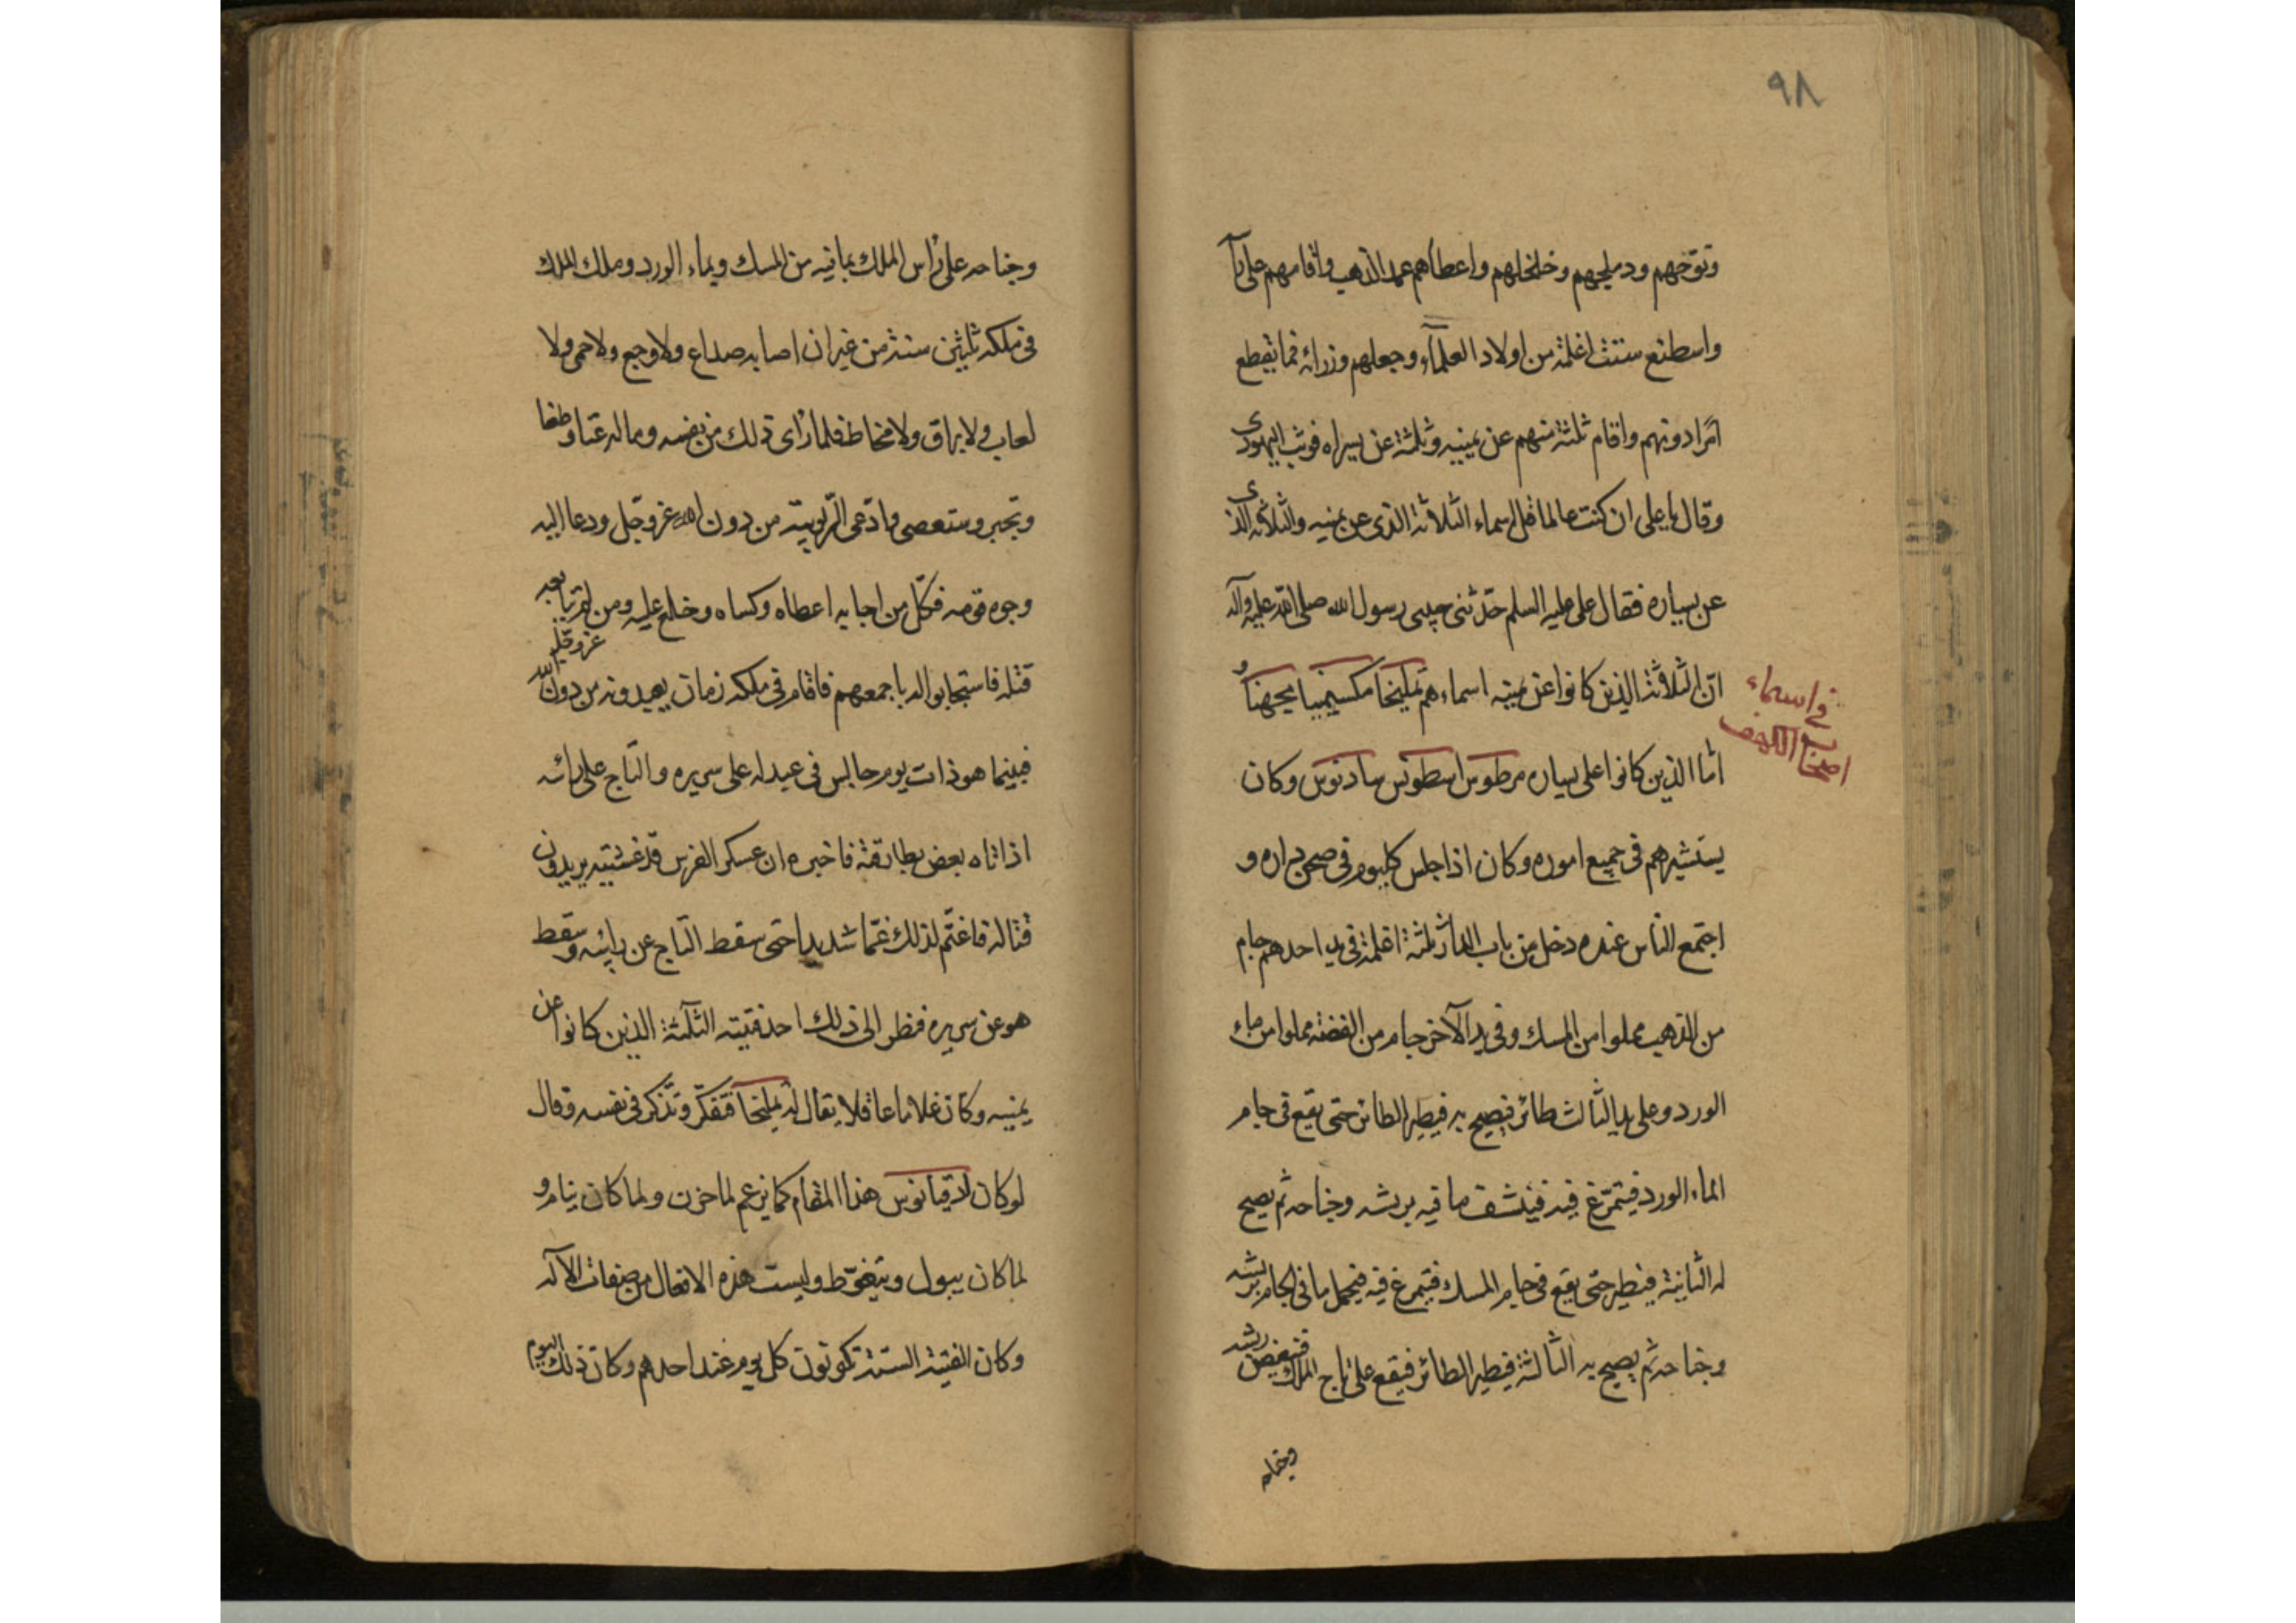 ٩٨
وتوّجهم ودملجهم وخلخلهم واعطاهم عمد الذهب واقامهم على رأ
واسطنع ستت اغلمة من اولاد العلمآء وجعلهم وزرائه فما يقطع
امرًا دونهم واقام ثلثة منهم عن يمينه وثلثة عن يسراه فوثب اليهودى
وقال يا على ان كنت عالما فقل اسماء الثلاثة الذى عن يمنيه والثلاثه الذى
عن يساره فقال على عليه السلم حدّثنى حبيبى رسول الله صلى الله عليه وآله
انّ الثلاثة الذين كانوا عن يمينه اسماءهم تمليخا مكسيمينا يجهنا و
فى اسماء
اصحاب الكهف
امّا الذين كانوا على يساره مرطوس اسطونس سادنوس وكان
يستشيرهم فى جميع اموره وكان اذا جلس كليوم فى صحن داره و
اجتمع الناس عنده دخل من باب الدار ثلثة اغلمة فى يد احدهم جام
من الذهب مملوا من المسك وفى يد الآخر جام من الفضه مملوا من ماء
الورد وعلى يد الثالث طائر فيصيح به فيطير الطائر حتى يقع فى جام
الماء الورد فيتمرّغ فيه فينشف ما فيه بريشه وجناحه ثم يصيح
له الثانية فيطير حتى يقع فى جام المسك فيتمرغ فيه فيحمل ما فى الجام بريشه
وجناحه ثم يصيح به الثالثة فيطير الطائر فيقع على تاج الملك فينغض ريشه
وجناحه
وجناحه على رأس الملك بما فيه من المسك وبماء الورد وملك الملك
فى ملكه ثلثين سنة من غير ان اصابه صداع ولا وجع ولا حمى ولا
لعاب ولا بزاق ولا مخاط فلما رأى ذلك من نفسه وماله عتا وطغا
وتجبر وستعصى وادّعى الرّبوبيّة من دون الله عزوجل ودعا اليه
وجوه قومه فكلّ من اجابه اعطاه وكساه وخلع عليه ومن لم يتابعه
قتله فاستجابوا له باجمعهم فاقام فى ملكه زمان يعبدونه من دون الله عزوجل
فبينما هو ذات يوم جالس فى عيد له على سريره والتاج على رائسه
اذ اتاه بعض بطارقة فاخبره ان عسكر الفرس قد غشيته يريدون
قتاله فاغتّم لذلك غمّا شديدا حتى سقط التاج عن رايسه وسقط
هو عن سريره فنظر الى ذلك احد فتيته الثلثة الذين كانوا عن
يمنيه وكان غلاما عاقلا يقال له تمليخا فتفكّر وتذكر فى نفسه وقال
لو كان لدقيانوس هذا المقام كما يزعم لما حزن ولما كان ينام و
لما كان يبول ويتغوّط وليست هذه الافعال من صفات الآله
وكان الفتية الستة تكونون كل يوم عند احدهم وكان ذلك اليوم